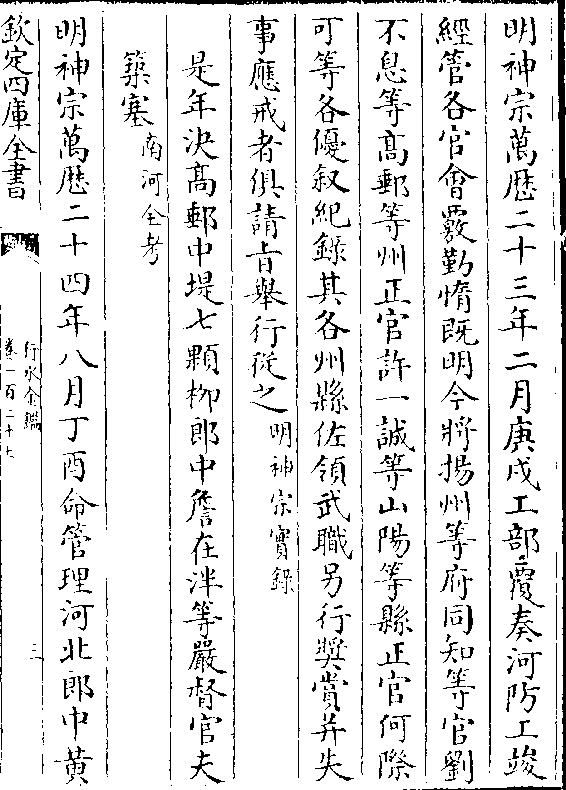 明神宗萬厯二十三年二月庚戌工部覆奏河防工竣
經管各官會覈勤惰既明今將揚州等府同知等官劉
不息等髙郵等州正官許一誠等山陽等縣正官何際
可等各優叙紀錄其各州縣佐領武職另行奬賞并失
事應戒者俱請㫖舉行從之明神宗實錄
是年決髙郵中堤七顆栁郎中詹在泮等嚴督官夫
築塞南河全考
明神宗萬厯二十四年八月丁酉命管理河北郎中黄
欽定四庫全書
行水金鑑
卷一百二十七
三